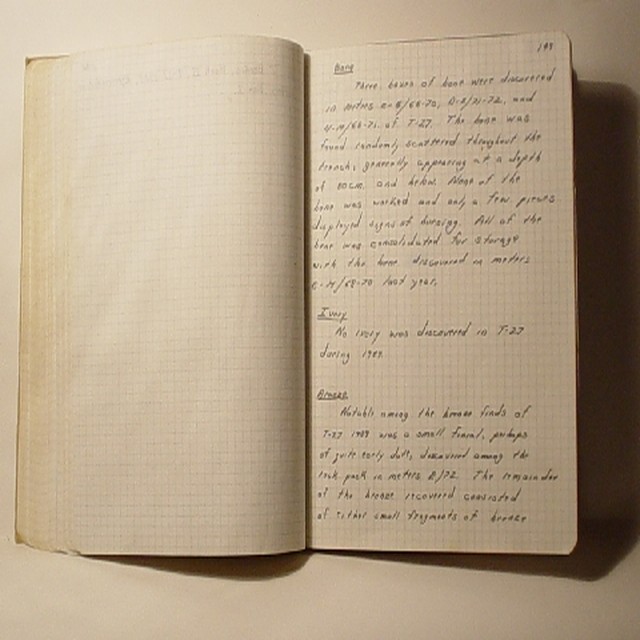 Bone
Three boxes of bone were discovered
in metres /68-70, /71-72, and
/66-71 of T-27. The bone was
found randomly scattered throughout the
trench, generally appearing at a depth
of 80cm. and below. None of the
bone was worked and only a few pieces
displayed signs of burning. All of the
bone was consolidated for storage
with the bone discovered in meters
/68-70 last year.
Ivory
No ivory was discovered in T-27
during 1989.
Bronze
Notable among the bronze finds of
T-27 1989 was a small, perhaps
of quite early date, discovered among the
rock pack in meters /72. The remainder
of the bronze recovered consisted
of either small fragments of bronze